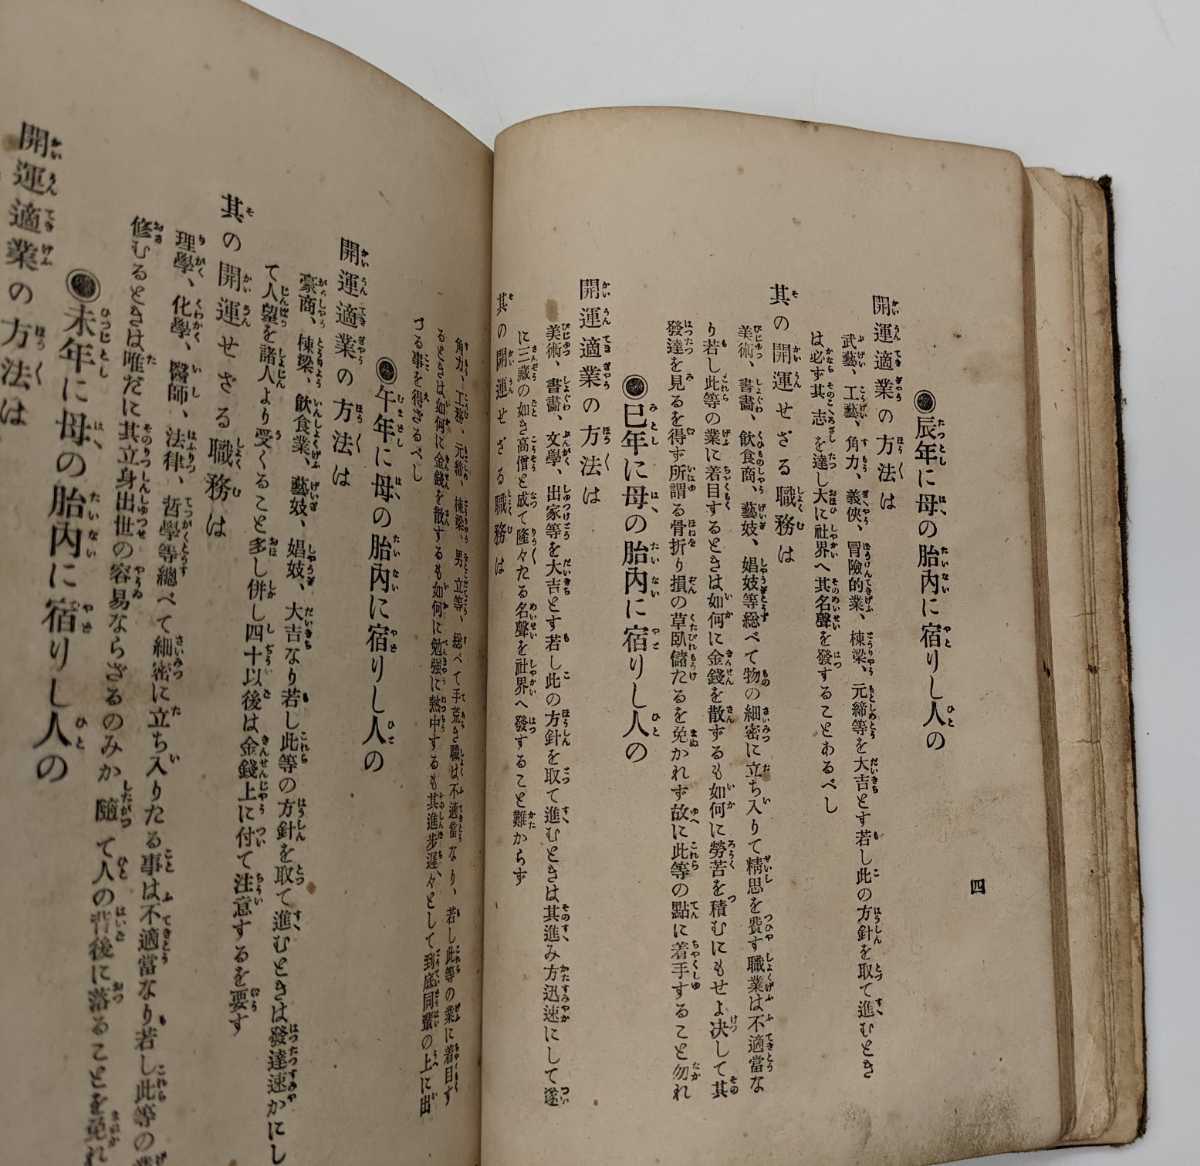 ◉辰年に母の胎內に宿りし人の
開運適業の方法は
武藝、工藝、角力、義俠、冒險的業、棟梁、元締等を大吉とす若し此の方針を取て進むとき
は必す其志を達し大に社界へ其名聲を發することあるべし
其の開運せざる職務は
美術、書畵、飮食商、藝妓、娼妓等総べて物の細密に立ち入りて精思を費す職業は不適當な
り若し此等の業に着目するときは如何に金錢を散ずるも如何に勞苦を積むにもせよ决して其
發達を見るを得ず所謂る骨折り損の草臥儲たるを免かれず故に此等の點に着手すること勿れ
◉巳年に母の胎內に宿りし人の
開運適業の方法は
美術、書畵、文學、出家等を大吉とす若し此の方針を取て進むときは其進み方迅速にして遂
に三藏の如き高僧と成て隆々たる名聲を社界へ發すること難からず
其の開運せざる職務は
四
角力、工務、元締、棟梁、男立等、総べて手荒き職は不適當なり、若し此等の業に着目す
るときは如何に金錢を散するも如何に勉强に熱中するも其進步遲々として到底同輩の上に出
づる事を得ざるべし
◉午年に母の胎內に宿りし人の
開運適業の方法は
豪商、棟梁、飮食業、藝妓、娼妓、大吉なり若し此等の方針を取て進むときは發達速かにし
て人望を諸人より受くること多し併し四十以後は金錢上に付て注意するを要す
其の開運せざる職務は
理學、化學、醫師、法律、哲學等總べて細密に立ち入りたる事は不適當なり若し此等の業
修むるときは唯だに其立身出世の容易ならざるのみか隨て人の背後に落ることを免れ
◉未年に母の胎內に宿りし人の
開運適業の方法は